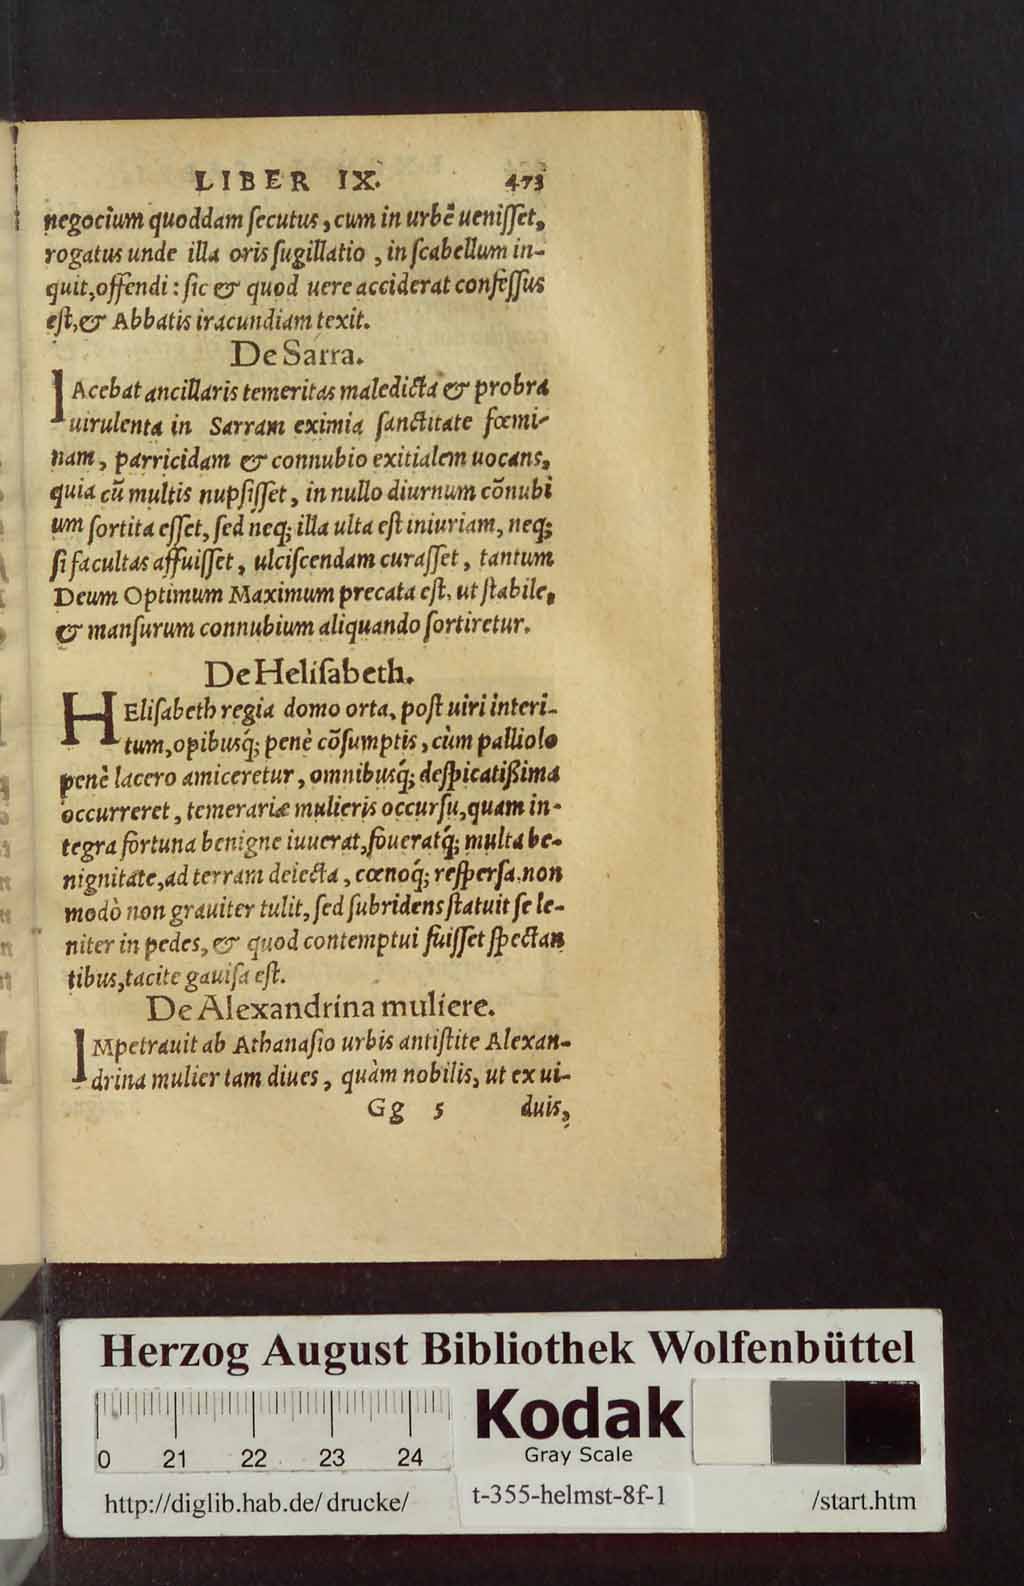 LIBER IX. 473
negocium quoddam ſecutus, cum in urbē ueniſſet,
rogatus unde illa oris ſugillatio, in ſcabellum in-
quit, offendi: ſic & quod uere acciderat confeſſus
eſt, & Abbatis iracundiam texit.
De Sarra.
IAcebat ancillaris temeritas maledicta & probra
uirulenta in Sarram eximia ſanctitate fœmi-
nam, parricidam & connubio exitialem uocans,
quia cū multis nupſiſſet, in nullo diurnum cōnubi
um ſortita eſſet, ſed neq; illa ulta eſt iniuriam, neq;
ſi facultas affuiſſet, ulciſcendam curaſſet, tantum
Deum Optimum Maximum precata eſt, ut ſtabile,
& manſurum connubium aliquando ſortiretur.
De Heliſabeth.
HEliſabeth regia domo orta, poſt uiri interi-
tum, opibusq́; penè cōſumptis, cùm palliolo
penè lacero amiceretur, omnibusq́; deſpicatiſſima
occurreret, temerariæ mulieris occurſu, quam in-
tegra fortuna benigne iuuerat, foueratq́; multa be-
nignitate, ad terram deiecta, cœnoq́; reſperſa, non
modò non grauiter tulit, ſed ſubridens ſtatuit ſe le-
niter in pedes, & quod contemptui fuiſſet ſpectan
tibus, tacite gauiſa eſt.
De Alexandrina muliere.
IMpetrauit ab Athanaſio urbis antiſtite Alexan-
drina mulier tam diues, quàm nobilis, ut ex ui-
Gg 5 duis,
Herzog August Bibliothek Wolfenbüttel
Kodak
Gray Scale
0 21 22 23 24
http://diglib.hab.de/drucke/ t-355-helmst-8f-1 /start.htm